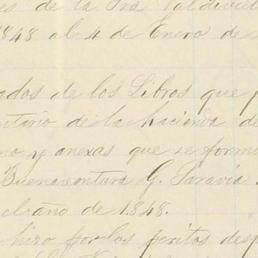 es de la Sra Valdivie
1848 al 4 de Enero de
ados de los Libros que p
ntario de la hacienda de
no y anexas que se form
Buenaventura G. Saravia
el año de 1848.
hizo por los peritos des